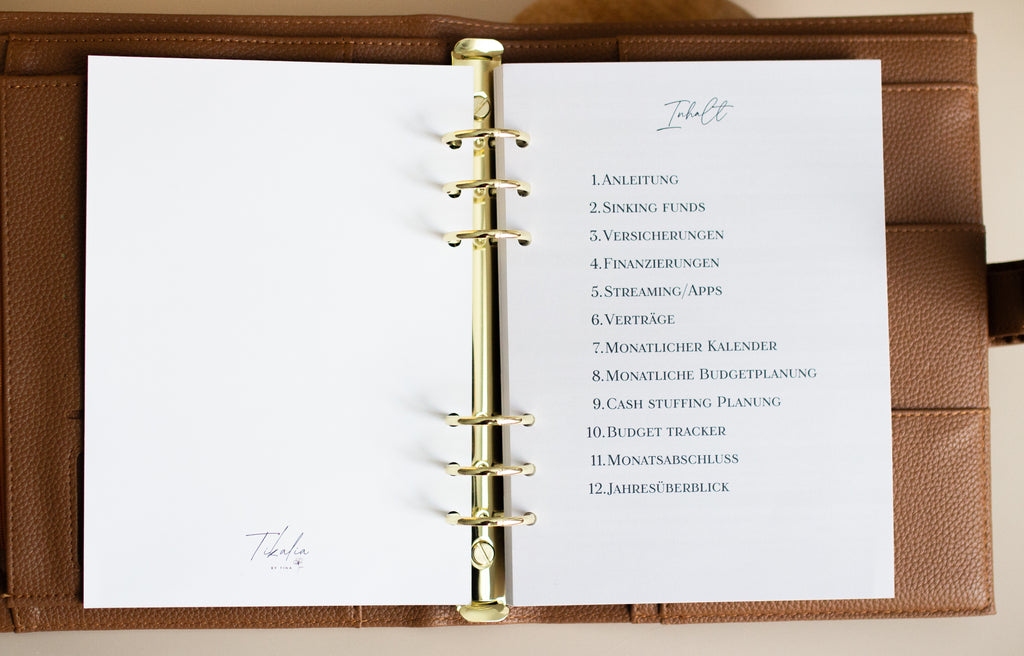 Tikalia
BY TINA
Inhalt
1. Anleitung
2. Sinking funds
3. Versicherungen
4. Finanzierungen
5. Streaming/Apps
6. Verträge
7. Monatlicher Kalender
8. Monatliche Budgetplanung
9. Cash stuffing Planung
10. Budget tracker
11. Monatsabschluss
12. Jahresüberblick